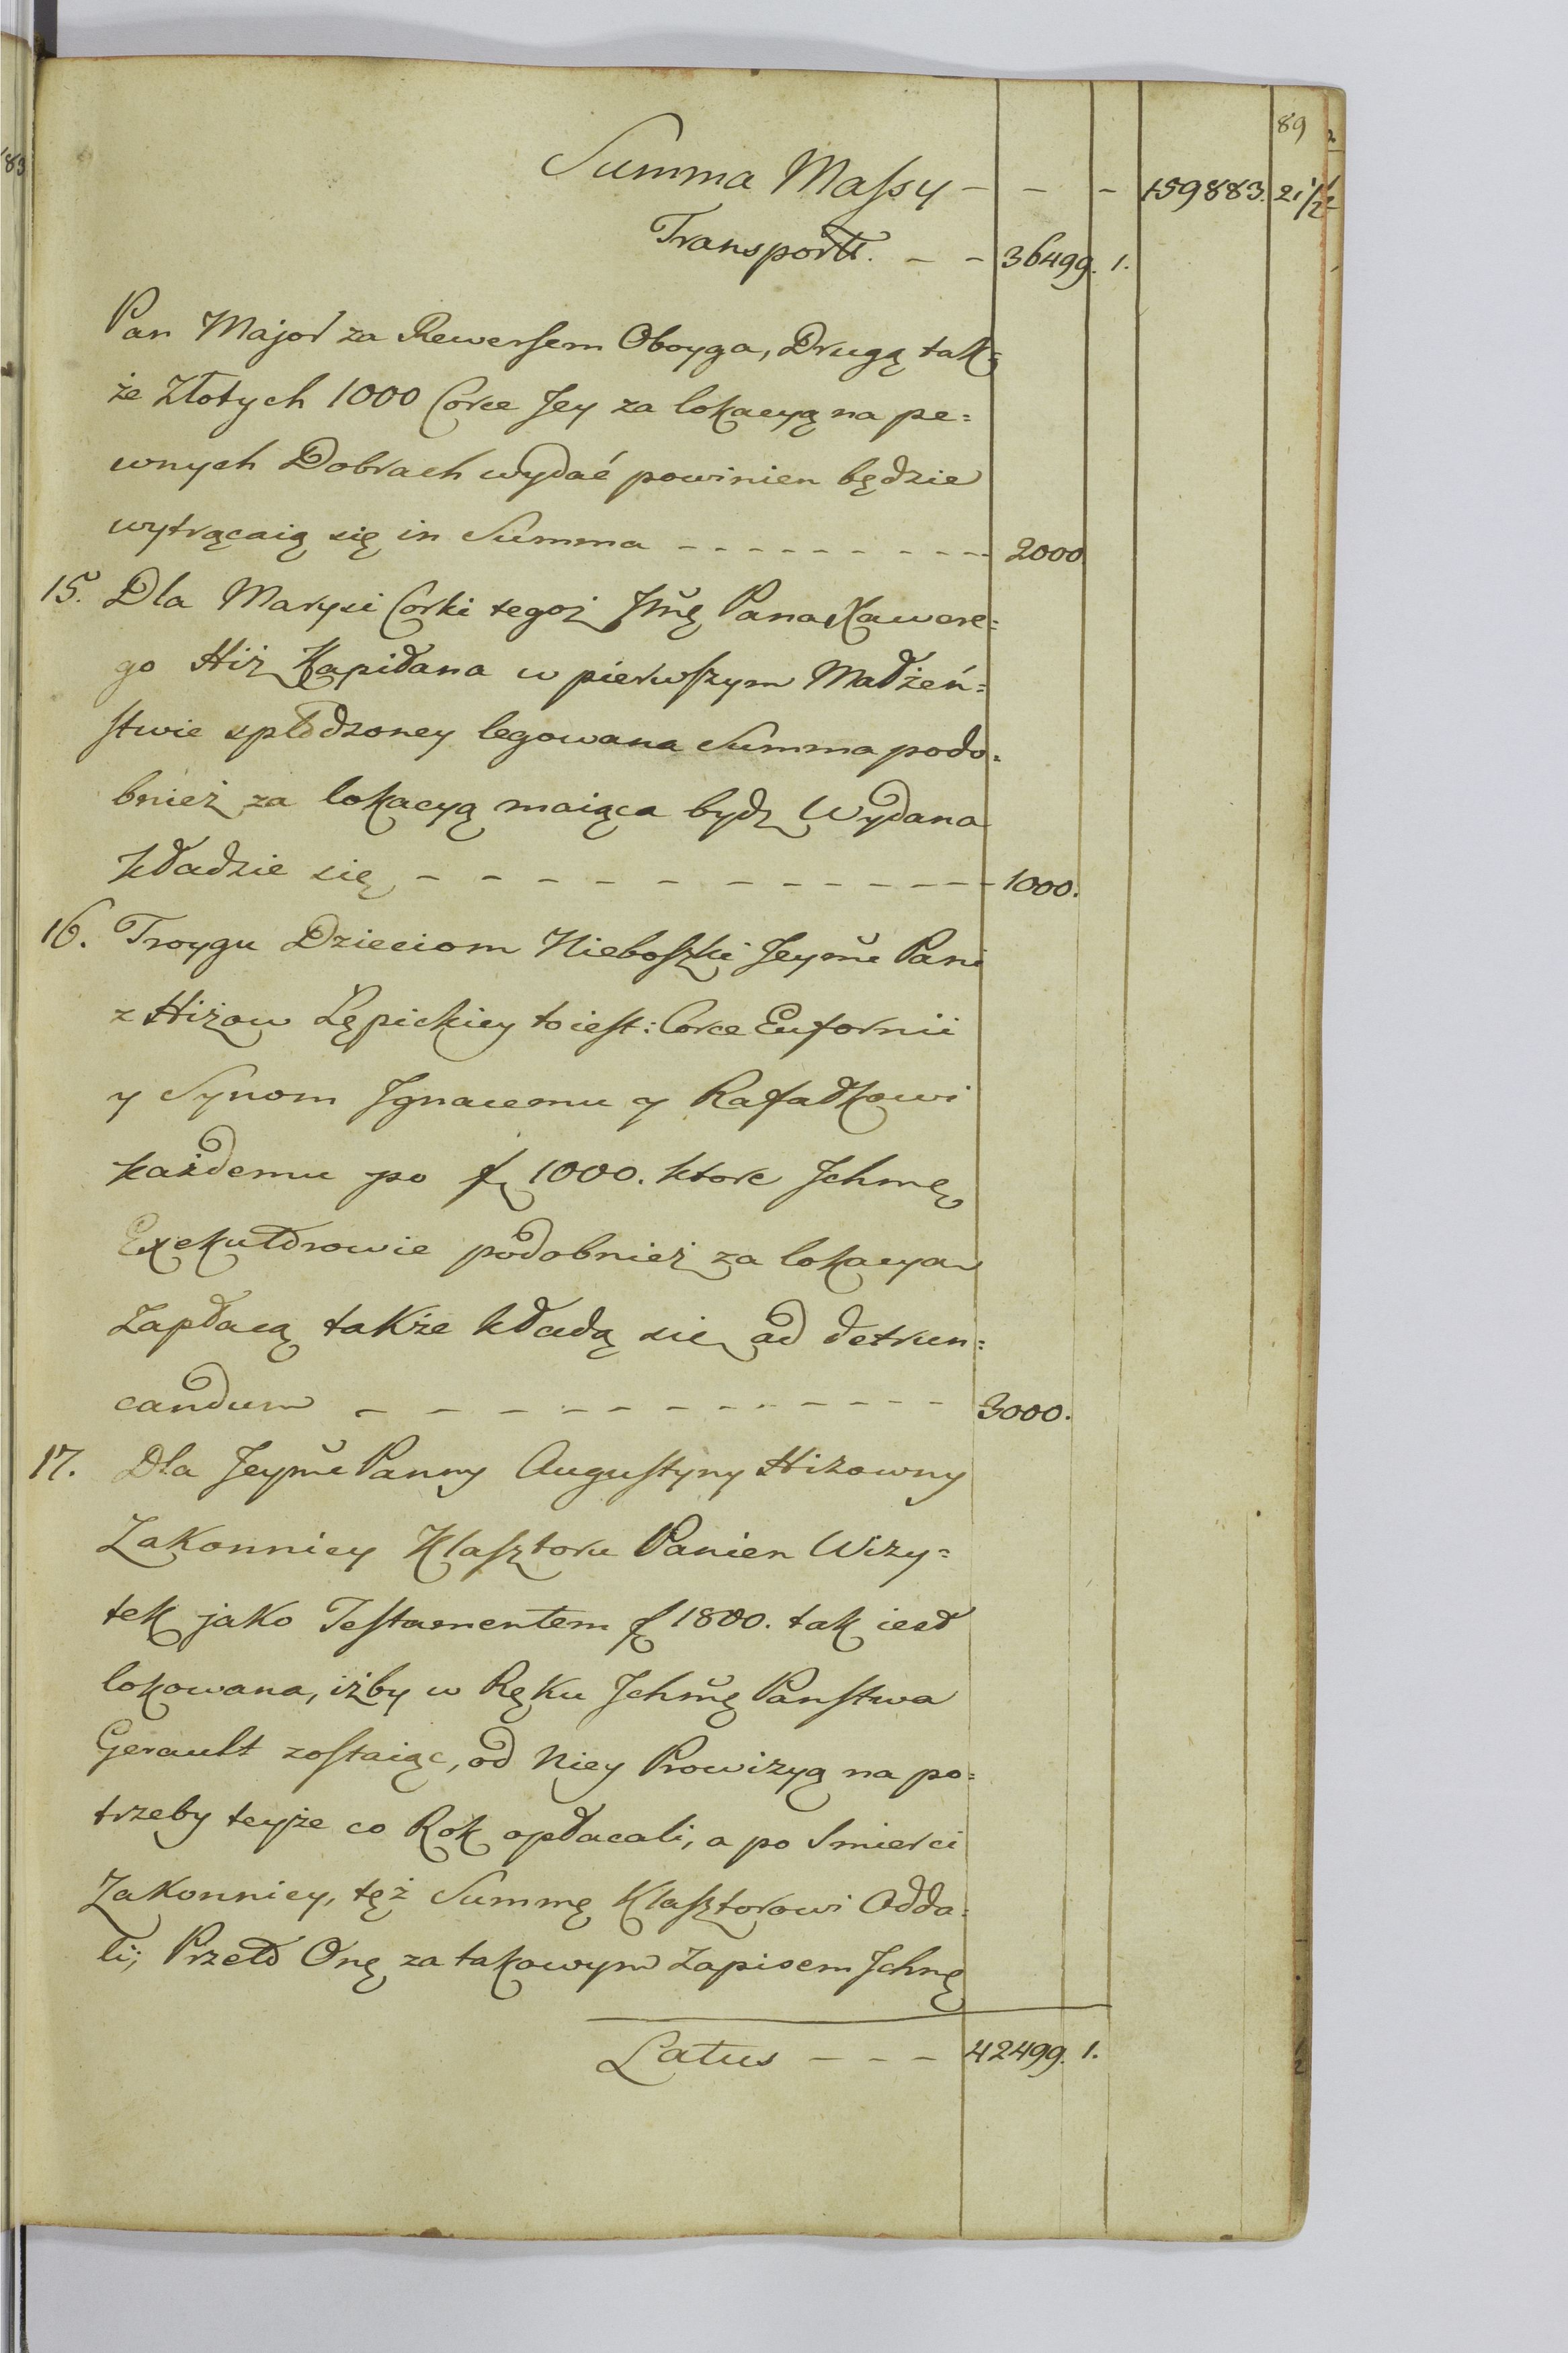 89
Summa Massy - - - 159883. 21 1/2
Transport. - - 36499. 1.
Pan Major za Rewersem Oboyga, Drugą tak=
że Złotych 1000 Corce Jey za lokacyą na pe=
wnych Dobrach wydać powinien będzie
wytrącaią się in Summa - - - - - - - - - 2000
15. Dla Marysi Corki tegoż Jmę Pana Xawere=
go Hiż Kapitana w pierwszym Małżeń=
stwie spłodzoney legowana Summa podo=
bnież za lokacyą maiąca bydź Wydana
kładzie się - - - - - - - - - - - 1000.
16. Troygu Dzieciom Nieboszki Jeyme Pani
z Hiżow Lępickiey to iest: Corce Eufornii
y Synom Jgnacemu y Rafałkowi
każdemu po f 1000. ktore Jchmę
Exekutorowie podobnież za lokacya
Zapłacą także kładą się ad detrun=
candum - - - - - - - - - - - 3000.
17. Dla Jeyme Panny Augustyny Hiżowny
Zakonnicy Klasztoru Panien Wizy=
tek jako Testamentem f 1800. tak iest
lokowana, iżby w Ręku Jchmę Panstwa
Gerault zostaiąc, od Niey Prowizyą na po=
trzeby teyże co Rok opłacali, a po Smierci
Zakonnicy, tęż Summę Klasztorowi Odda=
li; Przeto Onę za takowym Zapisem Jchmę
Latus - - - 42499. 1.